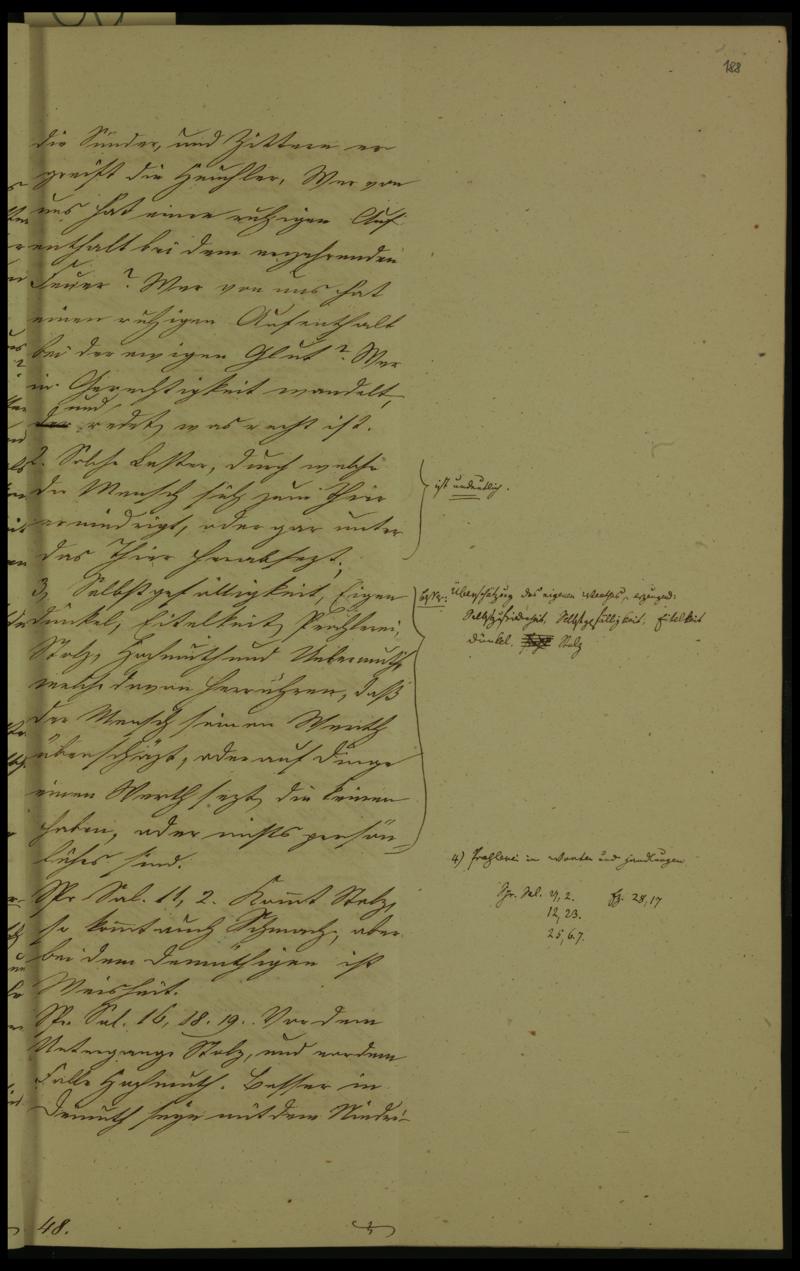 188
die Sünder, und Zittern er-
greift die Heuchler. Wer von
uns hat einen ruhigen Auf-
enthalt bei dem verzehrenden
Feuer? Wer von uns hat
einen ruhigen Aufenthalt
bei der ewigen Glut? Wer
in Gerechtigkeit wandelt,
und
redet, was recht ist.
2. Solche Laster, durch welche
der Mensch sich zum Thier
erniedrigt, oder gar unter
das Thier herabsezt;
3, Selbstgefälligkeit, Eigen-
dünkel, Eitelkeit, Prahlerei,
Stolz, Hochmuth und Uebermuth,
welche davon herrühren, daß
der Mensch seinen Werth
überschäzt, oder auf Dinge
einen Werth sezt, die keinen
haben, oder nichts persön-
liches sind.
Spr. Sal. 11, 2. Kommt Stolz,
so kommt auch Schmach, aber
bei dem Demüthigen ist
Weisheit.
Spr. Sal. 16, 18. 19. Vor dem
Untergange Stolz, und vor dem
Falle Hochmuth. Besser in
Demuth seyn mit den Niedri-
48.
ist undeutlich.
Überschätzung des eigenen Werthes, erzeugend:
Selbstzufriedenheit, Selbstgefälligkeit, Eitelkeit
Dünkel. Stolz
4) Prahlerei in Worten und Handlungen
Spr. Sal. 27, 2. Ez. 28, 17
12, 23.
25, 6. 7.